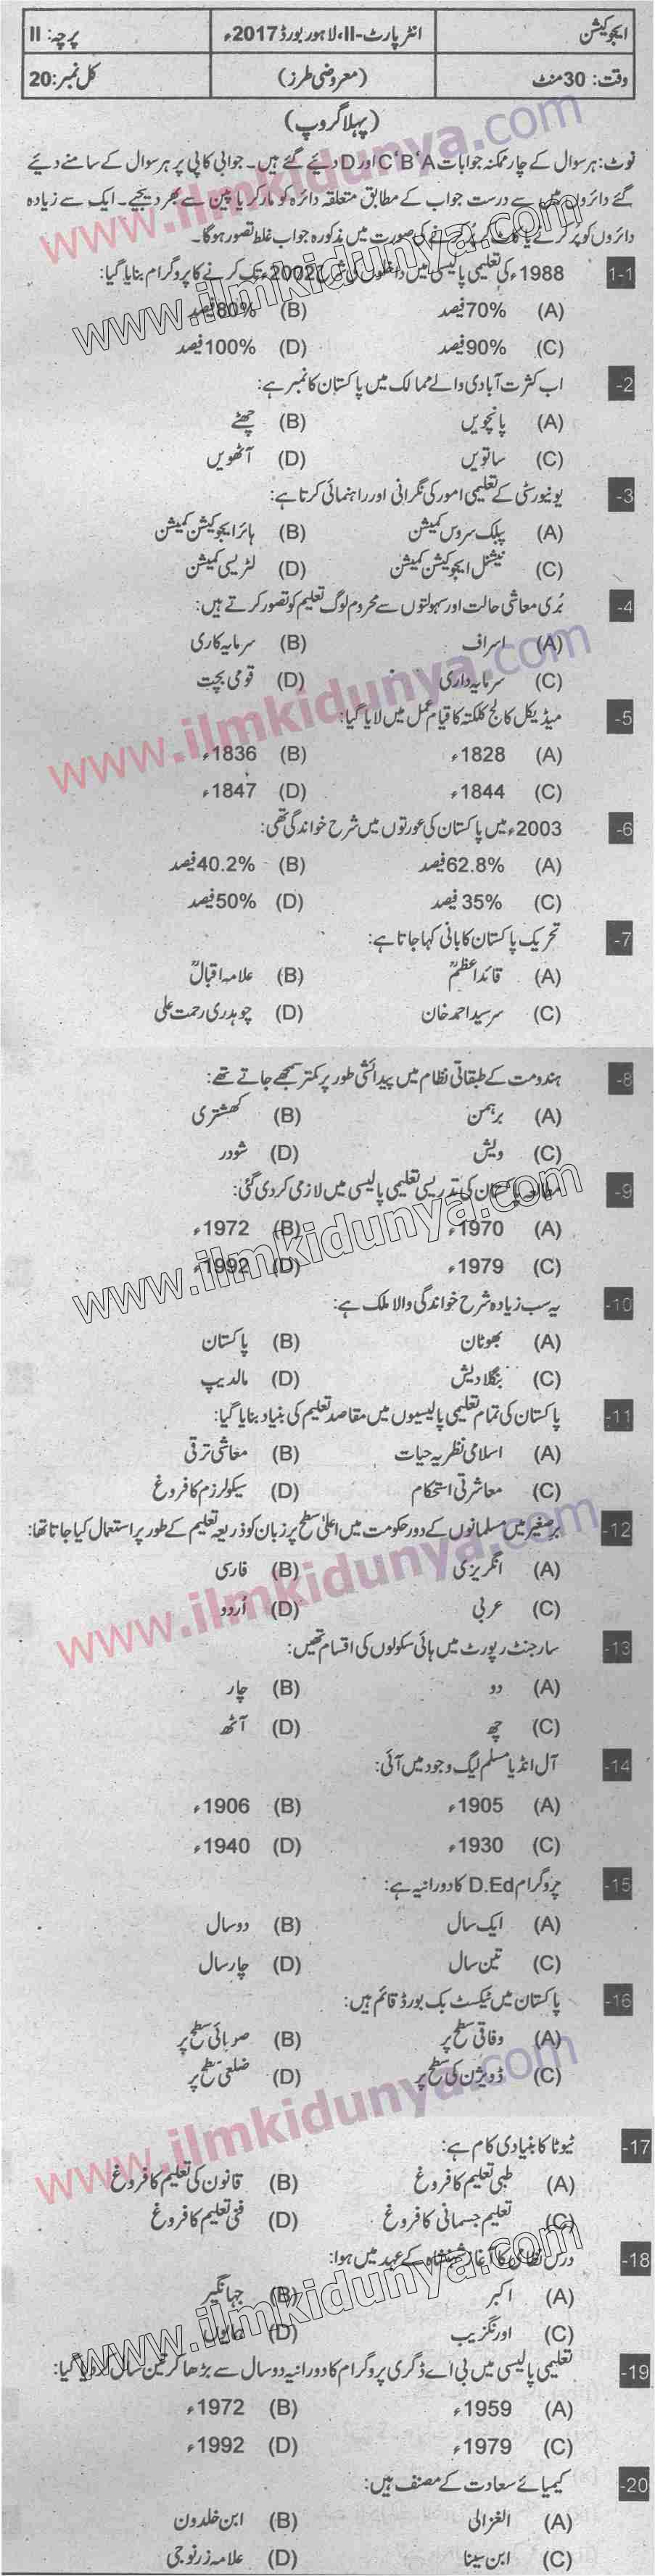 ایجوکیشن انٹر پارٹ-II، لاہور بورڈ 2017ء پرچہ: II
وقت: 30 منٹ (معروضی طرز) کل نمبر: 20
(پہلا گروپ)
نوٹ: ہر سوال کے چار ممکنہ جوابات A‘ B‘ C اور D دیئے گئے ہیں۔ جوابی کاپی پر ہر سوال کے سامنے دیئے
گئے دائروں میں سے درست جواب کے مطابق متعلقہ دائرہ کو مارکر یا پین سے بھر دیجیے۔ ایک سے زیادہ
دائروں کو پُر کرنے یا کاٹ کر پُر کرنے کی صورت میں مذکورہ جواب غلط تصور ہوگا۔
1-1 1988ء کی تعلیمی پالیسی میں داخلوں کی شرح 2002ء تک کرنے کا پروگرام بنایا گیا:
(A) 70% فیصد (B) 80% فیصد
(C) 90% فیصد (D) 100% فیصد
-2 اب کثرت آبادی والے ممالک میں پاکستان کا نمبر ہے:
(A) پانچویں (B) چھٹے
(C) ساتویں (D) آٹھویں
-3 یونیورسٹی کے تعلیمی امور کی نگرانی اور راہنمائی کرتا ہے:
(A) پبلک سروس کمیشن (B) ہائر ایجوکیشن کمیشن
(C) نیشنل ایجوکیشن کمیشن (D) لٹریسی کمیشن
-4 بُری معاشی حالت اور سہولتوں سے محروم لوگ تعلیم کو تصور کرتے ہیں:
(A) اسراف (B) سرمایہ کاری
(C) سرمایہ داری (D) قومی بچت
-5 میڈیکل کالج کلکتہ کا قیام عمل میں لایا گیا:
(A) 1828ء (B) 1836ء
(C) 1844ء (D) 1847ء
-6 2003ء میں پاکستان کی عورتوں میں شرح خواندگی تھی:
(A) 62.8% فیصد (B) 40.2% فیصد
(C) 35% فیصد (D) 50% فیصد
-7 تحریک پاکستان کا بانی کہا جاتا ہے:
(A) قائداعظمؒ (B) علامہ اقبالؒ
(C) سر سید احمد خان (D) چوہدری رحمت علی
-8 ہندومت کے طبقاتی نظام میں پیدائشی طور پر کمتر سمجھے جاتے تھے:
(A) برہمن (B) کھشتری
(C) ویش (D) شودر
-9 مطالعہ پاکستان کی تدریسی تعلیمی پالیسی میں لازمی کر دی گئی:
(A) 1970ء (B) 1972ء
(C) 1979ء (D) 1992ء
-10 یہ سب زیادہ شرح خواندگی والا ملک ہے:
(A) بھوٹان (B) پاکستان
(C) بنگلا دیش (D) مالدیپ
-11 پاکستان کی تمام تعلیمی پالیسیوں میں مقاصد تعلیم کی بنیاد بنایا گیا:
(A) اسلامی نظریہ حیات (B) معاشی ترقی
(C) معاشرتی استحکام (D) سیکولرزم کا فروغ
-12 برصغیر میں مسلمانوں کے دور حکومت میں اعلیٰ سطح پر زبان کو ذریعہ تعلیم کے طور پر استعمال کیا جاتا تھا:
(A) انگریزی (B) فارسی
(C) عربی (D) اُردو
-13 سارجنٹ رپورٹ میں ہائی سکولوں کی اقسام تھیں:
(A) دو (B) چار
(C) چھ (D) آٹھ
-14 آل انڈیا مسلم لیگ وجود میں آئی:
(A) 1905ء (B) 1906ء
(C) 1930ء (D) 1940ء
-15 پروگرام D.Ed کا دورانیہ ہے:
(A) ایک سال (B) دو سال
(C) تین سال (D) چار سال
-16 پاکستان میں ٹیکسٹ بک بورڈ قائم ہیں:
(A) وفاقی سطح پر (B) صوبائی سطح پر
(C) ڈویژن کی سطح پر (D) ضلعی سطح پر
-17 ٹیوٹا کا بنیادی کام ہے:
(A) طبی تعلیم کا فروغ (B) قانون کی تعلیم کا فروغ
(C) تعلیم جسمانی کا فروغ (D) فنی تعلیم کا فروغ
-18 درس نظامی کا آغاز شہنشاہ کے عہد میں ہوا:
(A) اکبر (B) جہانگیر
(C) اورنگزیب (D) ہمایوں
-19 تعلیمی پالیسی میں بی اے ڈگری پروگرام کا دورانیہ دو سال سے بڑھا کر تین سال کر دیا گیا:
(A) 1959ء (B) 1972ء
(C) 1979ء (D) 1992ء
-20 کیمیائے سعادت کے مصنف ہیں:
(A) الغزالی (B) ابن خلدون
(C) ابن سینا (D) علامہ زرنوجی
www.ilmkidunya.com
www.ilmkidunya.com
www.ilmkidunya.com
www.ilmkidunya.com
www.ilmkidunya.com
www.ilmkidunya.com
www.ilmkidunya.com